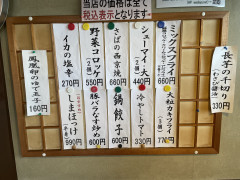 当店の価格は全て
税込表示となります。
長芋の千切り
(わさび醤油)
330円
ミックスフライ
660円
大粒カキフライ
770円
シューマイ・大
440円
冷やしトマト
330円
さばの西京焼
660円
鍋餃子
600円
野菜コロッケ
(2個)
550円
豚バラなす炒め
600円
イカの塩辛
270円
しまほっけ
690円
鳳凰卵の味で玉子
160円